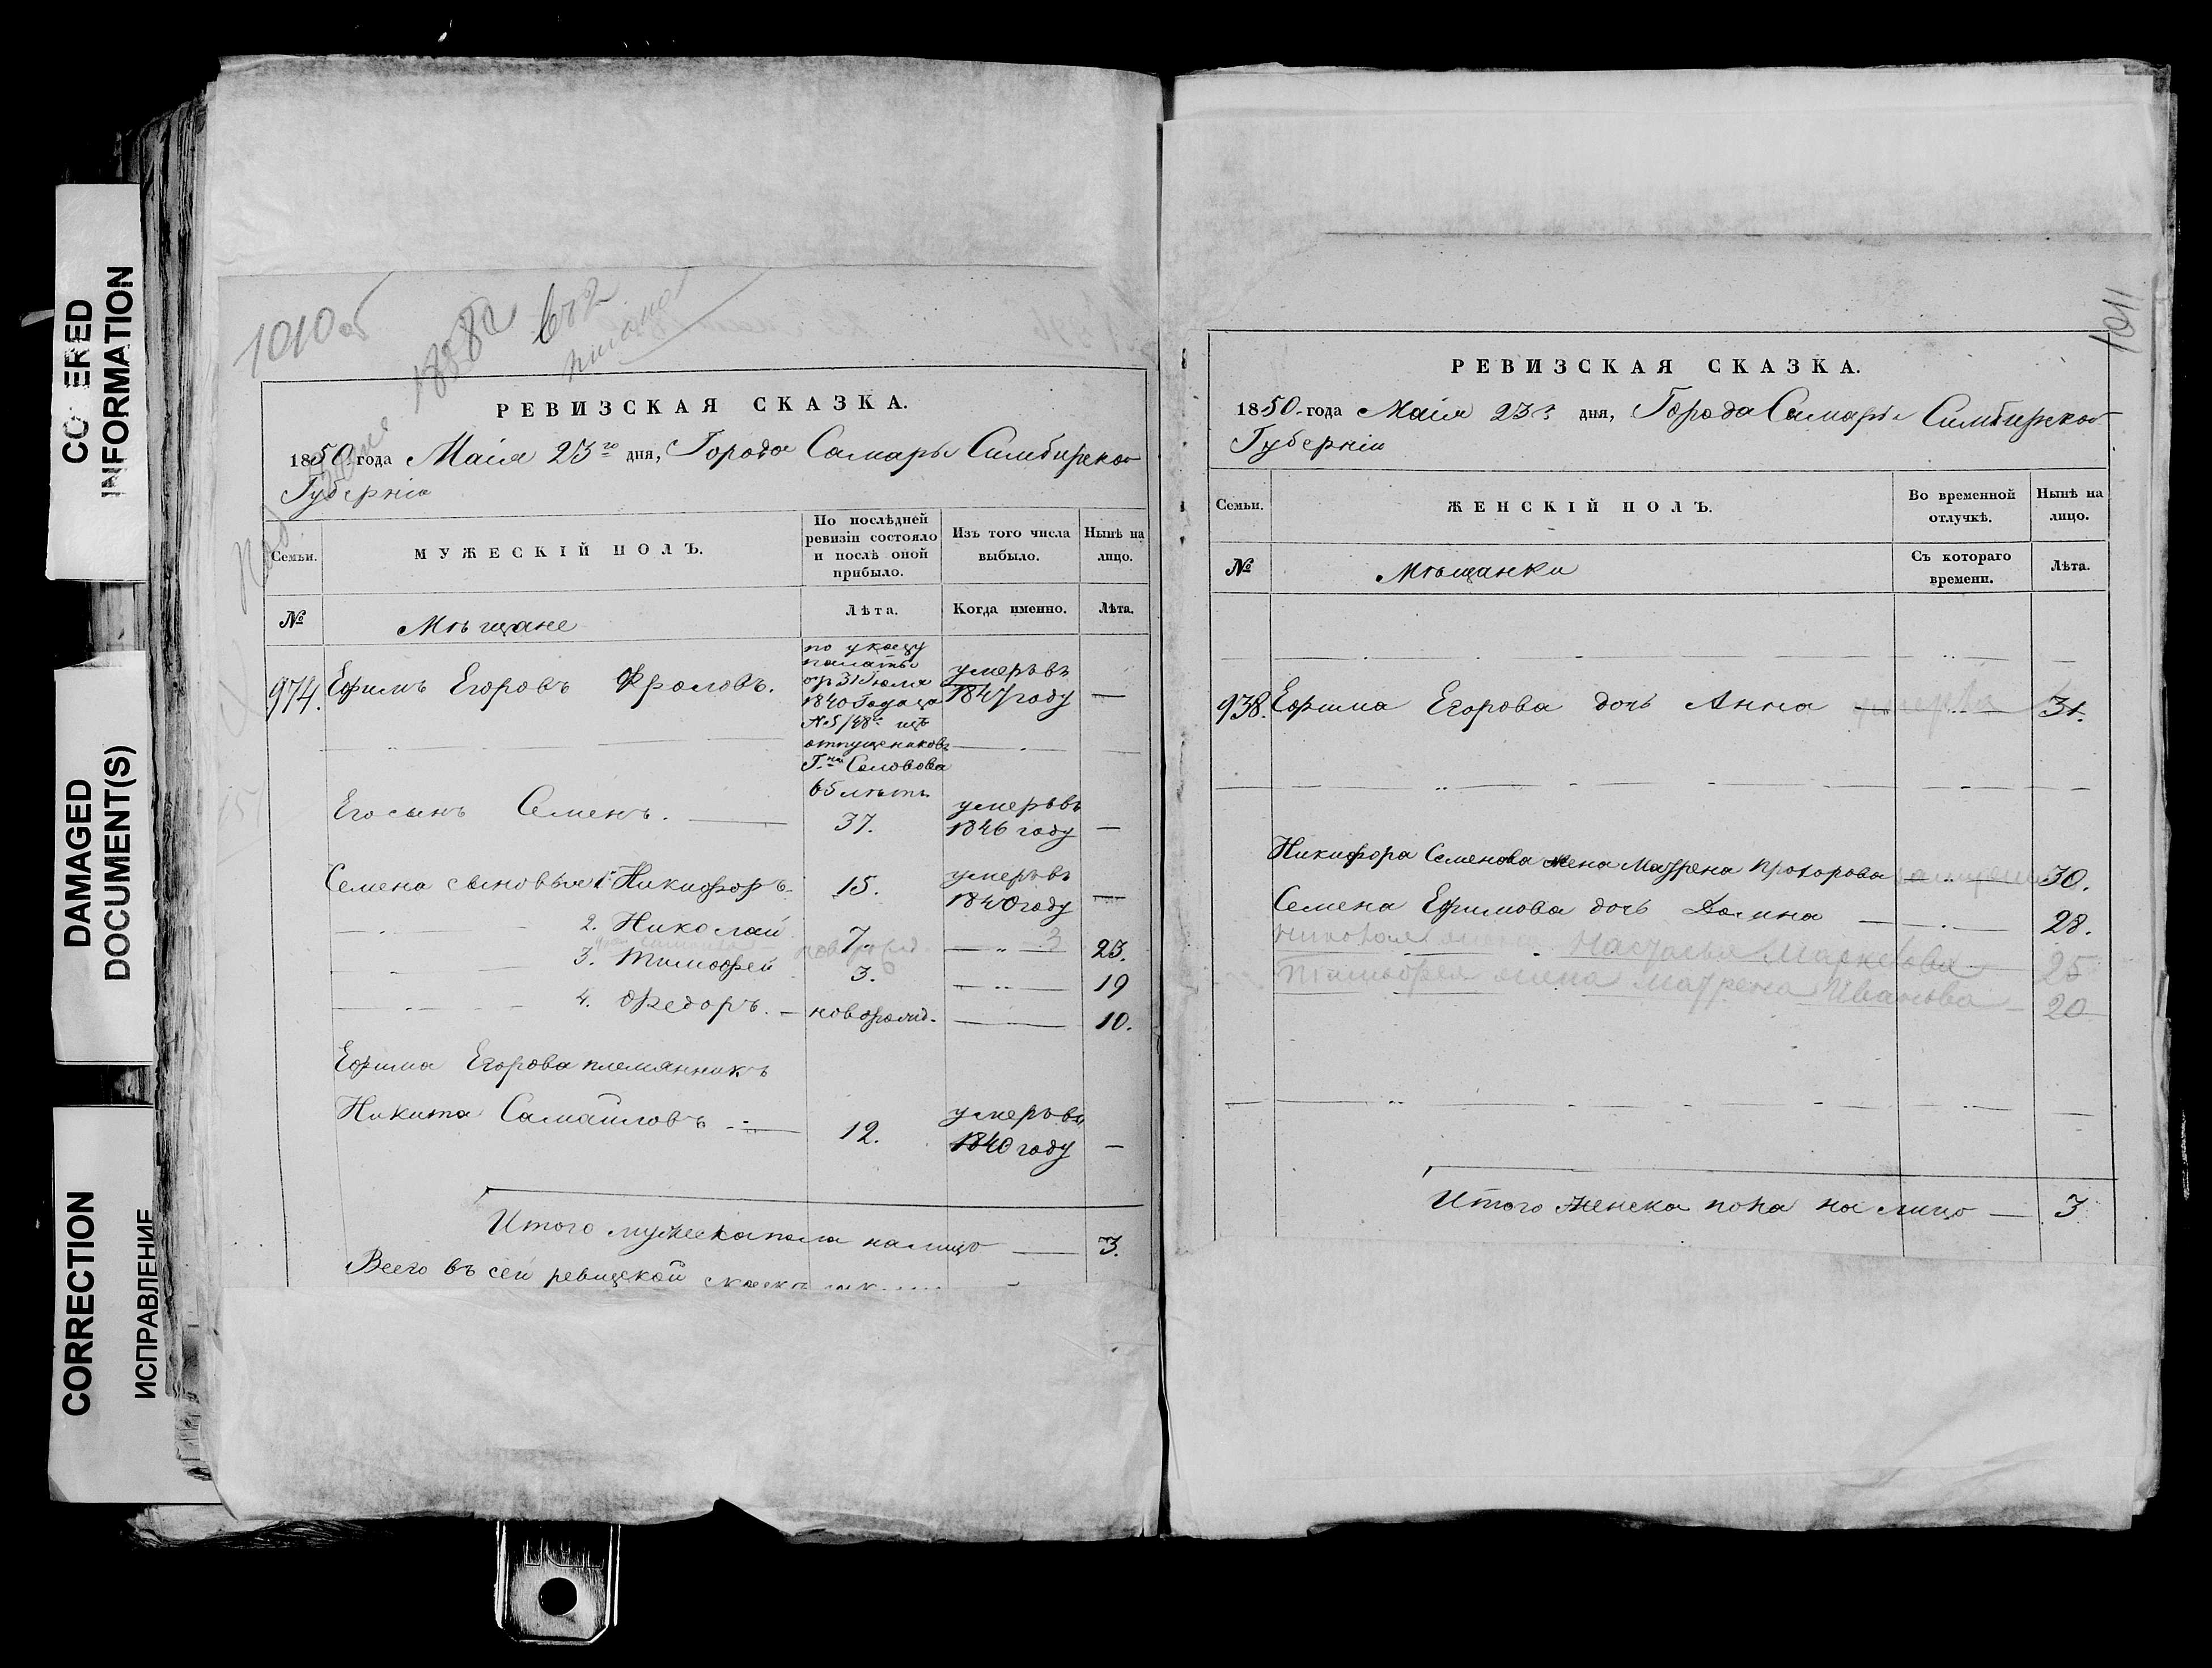 CO ERED
INFORMATION
DAMAGED
DOCUMENT(S)
CORRECTION
ИСПРАВЛЕНІЕ
1010 об
672
РЕВИЗСКАЯ СКАЗКА.
1850 года Маія 23го дня, Города Самары Симбирской
Губерніи
Семьи.
МУЖЕСКІЙ ПОЛЪ.
По послѣдней
ревизіи состояло
и послѣ оной
прибыло.
Изъ того числа
выбыло.
Нынѣ на
лицо.
№
Мѣщане
Лѣта.
Когда именно.
Лѣта.
974. Ефимъ Егоровъ Фроловъ.
по указу
палаты
от 31 Іюля
1840 Года за
№ 5148м изъ
отпущениковъ
Гна Соловова
65 лѣтъ
умеръ въ
1847 году —
Его сынъ Семенъ. — 37. умеръ въ
1846 году —
Семена сыновья 1й Никифоръ 15. умеръ въ
1840 году —
2. Николай 7. 3 23.
3. Тимофей 3. 19
4. Федоръ. — новорожд. — 10.
Ефима Егорова племянникъ
Никита Самайловъ 12. умеръ въ
1840 году —
Итого мужеска пола на лицо — 3.
Всего въ сей ревизской
1011
РЕВИЗСКАЯ СКАЗКА.
1850 года Маія 23го дня, Города Самары Симбирской
Губерніи
Семьи.
ЖЕНСКІЙ ПОЛЪ.
Во временной
отлучкѣ.
Нынѣ на
лицо.
№
Мѣщанки
Съ котораго
времени.
Лѣта.
938. Ефима Егорова дочь Анна — 31.
Никифора Семенова жена Матрена Прохорова 30.
Семена Ефимова дочь Домна — 28.
Николая жена Настасья Маркелова 25
Тимофея жена Матрена Иванова 20
Итого женска пола на лицо — 3